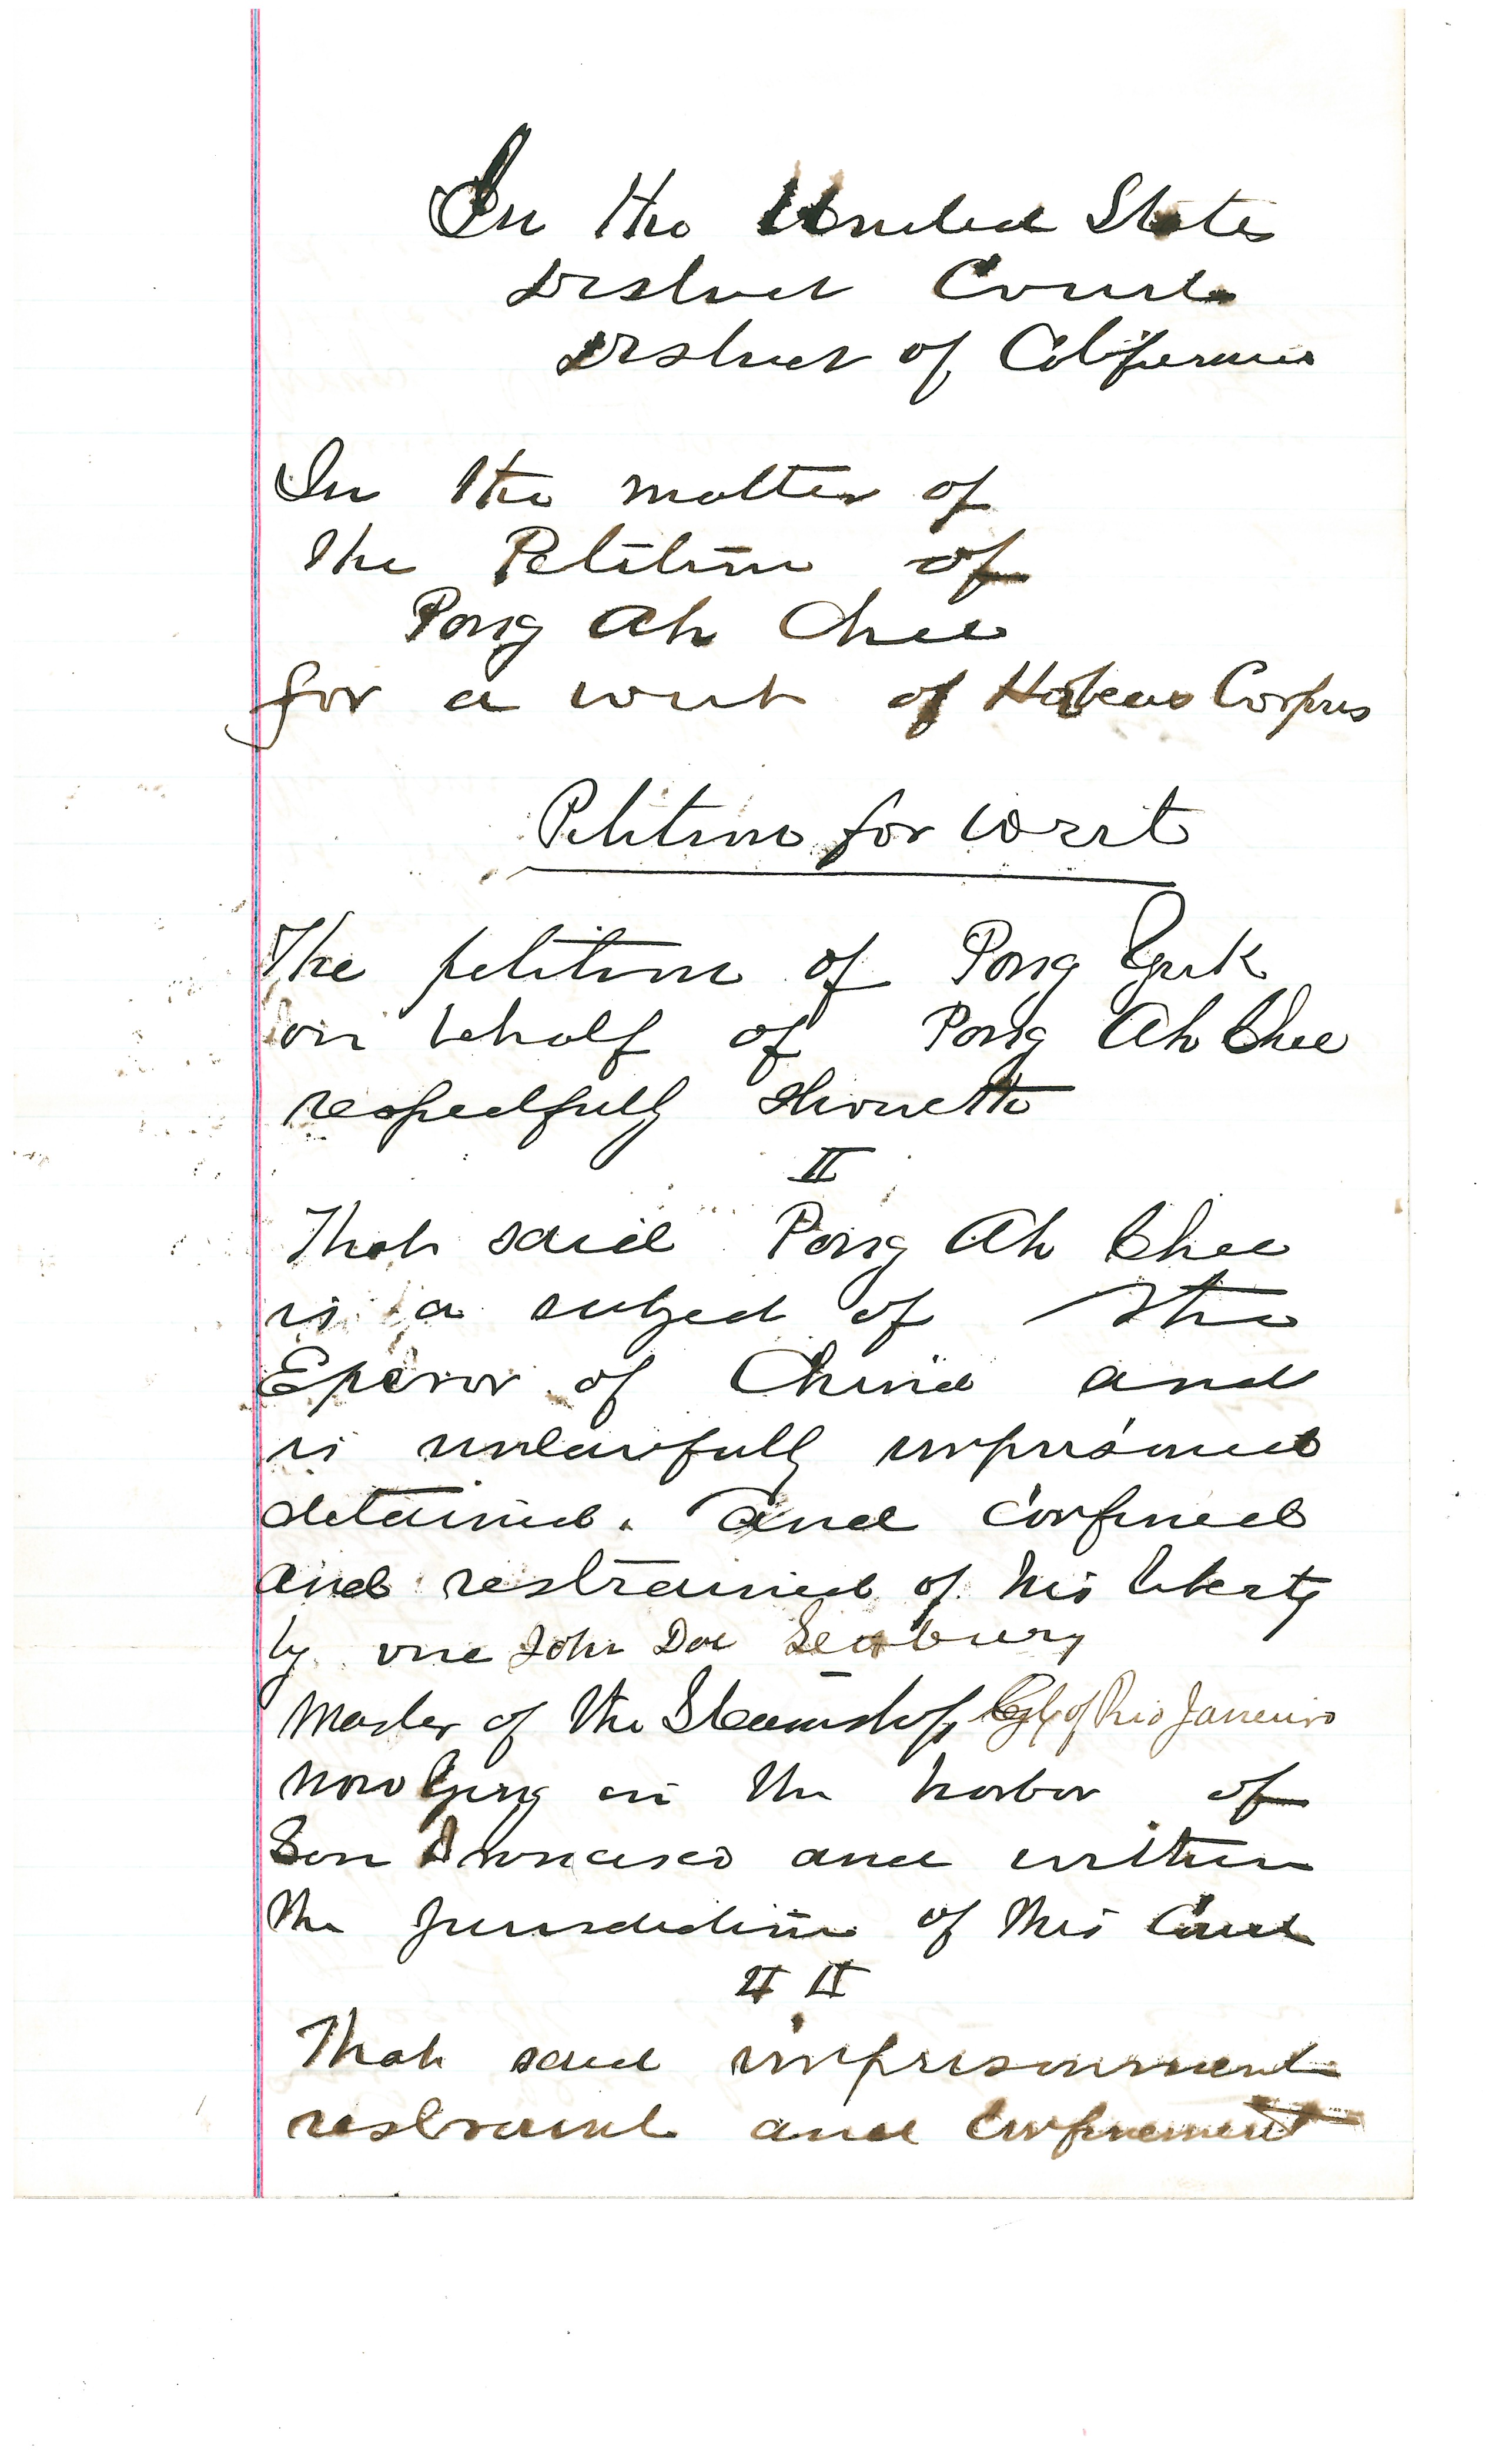 In the United States
District Court
District of California
In the matter of
the Petition of
Pong Ah Chee
for a writ of Habeas Corpus
Petition for Writ
The petition of Pong
on behalf of Pong Ah Chee
respectfully showeth
II
That said Pong Ah Chee
is a subject of the
Eperor of China and
is unlawfully imprisoned
detained. and confined
and restrained of his liberty
by one John Doe Seabury
Master of the Steamship City of Rio Janeiro
now lying in the harbor of
San Francisco and within
the jurisdiction of this Court
II
That said imprisonment
restraint and confinement